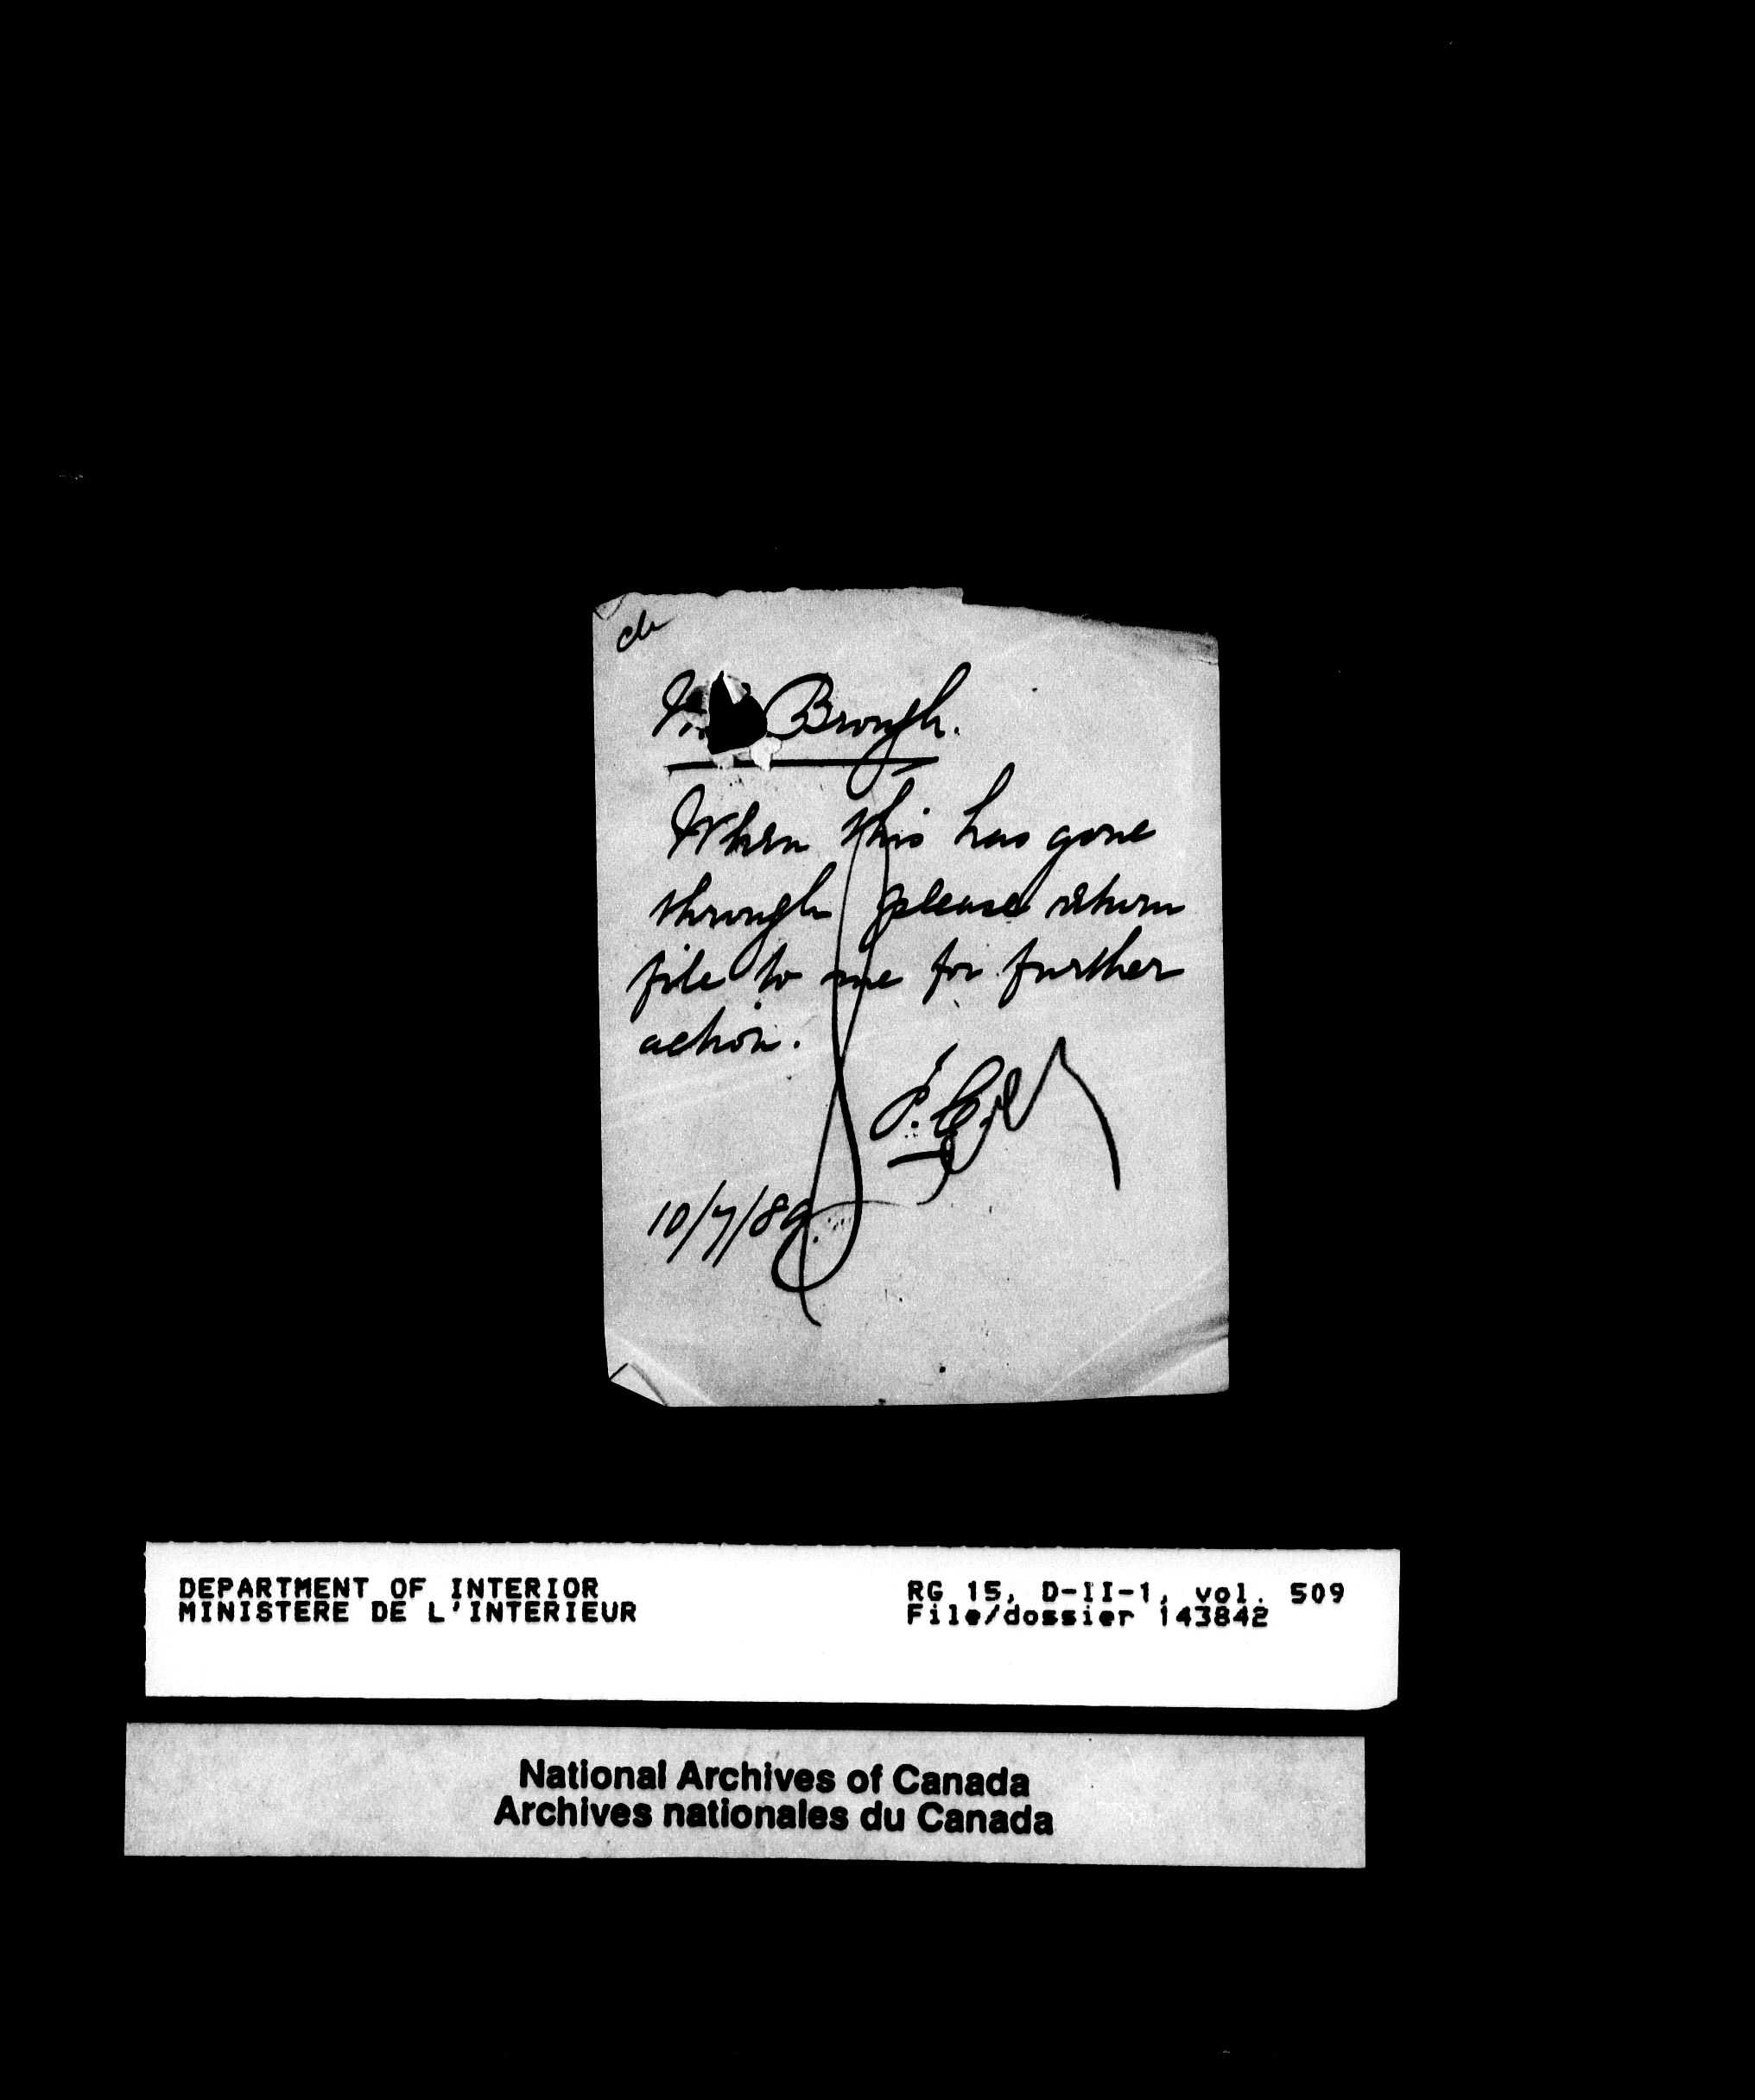 Brough.
When this has gone
through please return
file to me for further
action.
10/7/89
DEPARTMENT OF INTERIOR
MINISTERE DE L'INTERIEUR
RG 15, D-II-1, vol. 509
File/dossier 143842
National Archives of Canada
Archives nationales du Canada